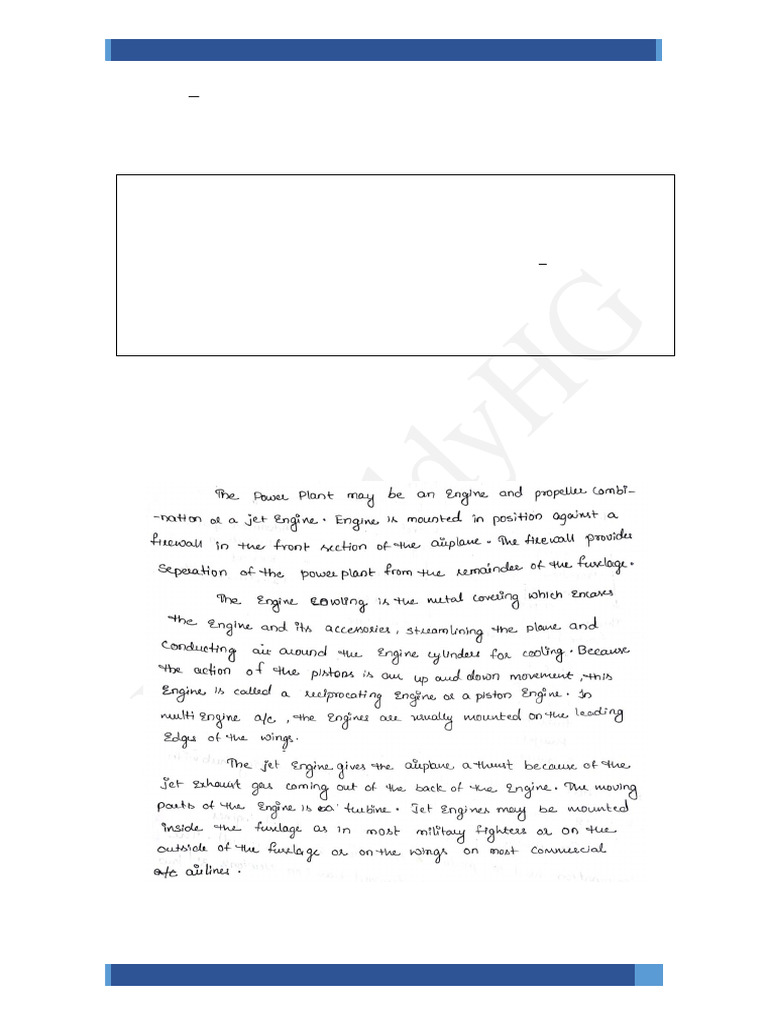 ddyHG
The Power Plant may be an Engine and propeller Combi-
-nation or a jet Engine. Engine is mounted in position against a
firewall in the front section of the airplane. The firewall provides
Seperation of the powerplant from the remainder of the fuselage.
The Engine cowling is the metal covering which Encases
the Engine and its accessories, streamlining the plane and
Conducting air around the Engine cylinders for cooling. Because
the action of the pistons is an up and down movement, this
Engine is called a reciprocating Engine or a piston Engine. In
multi Engine a/c, the Engines are usually mounted on the leading
Edges of the wings.
The jet Engine gives the airplane a thrust because of the
jet Exhaust gas coming out of the back of the Engine. The moving
parts of the Engine is turbine. Jet Engines may be mounted
inside the fuselage as in most military fighters or on the
outside of the fuselage or on the wings on most commercial
a/c airlines.